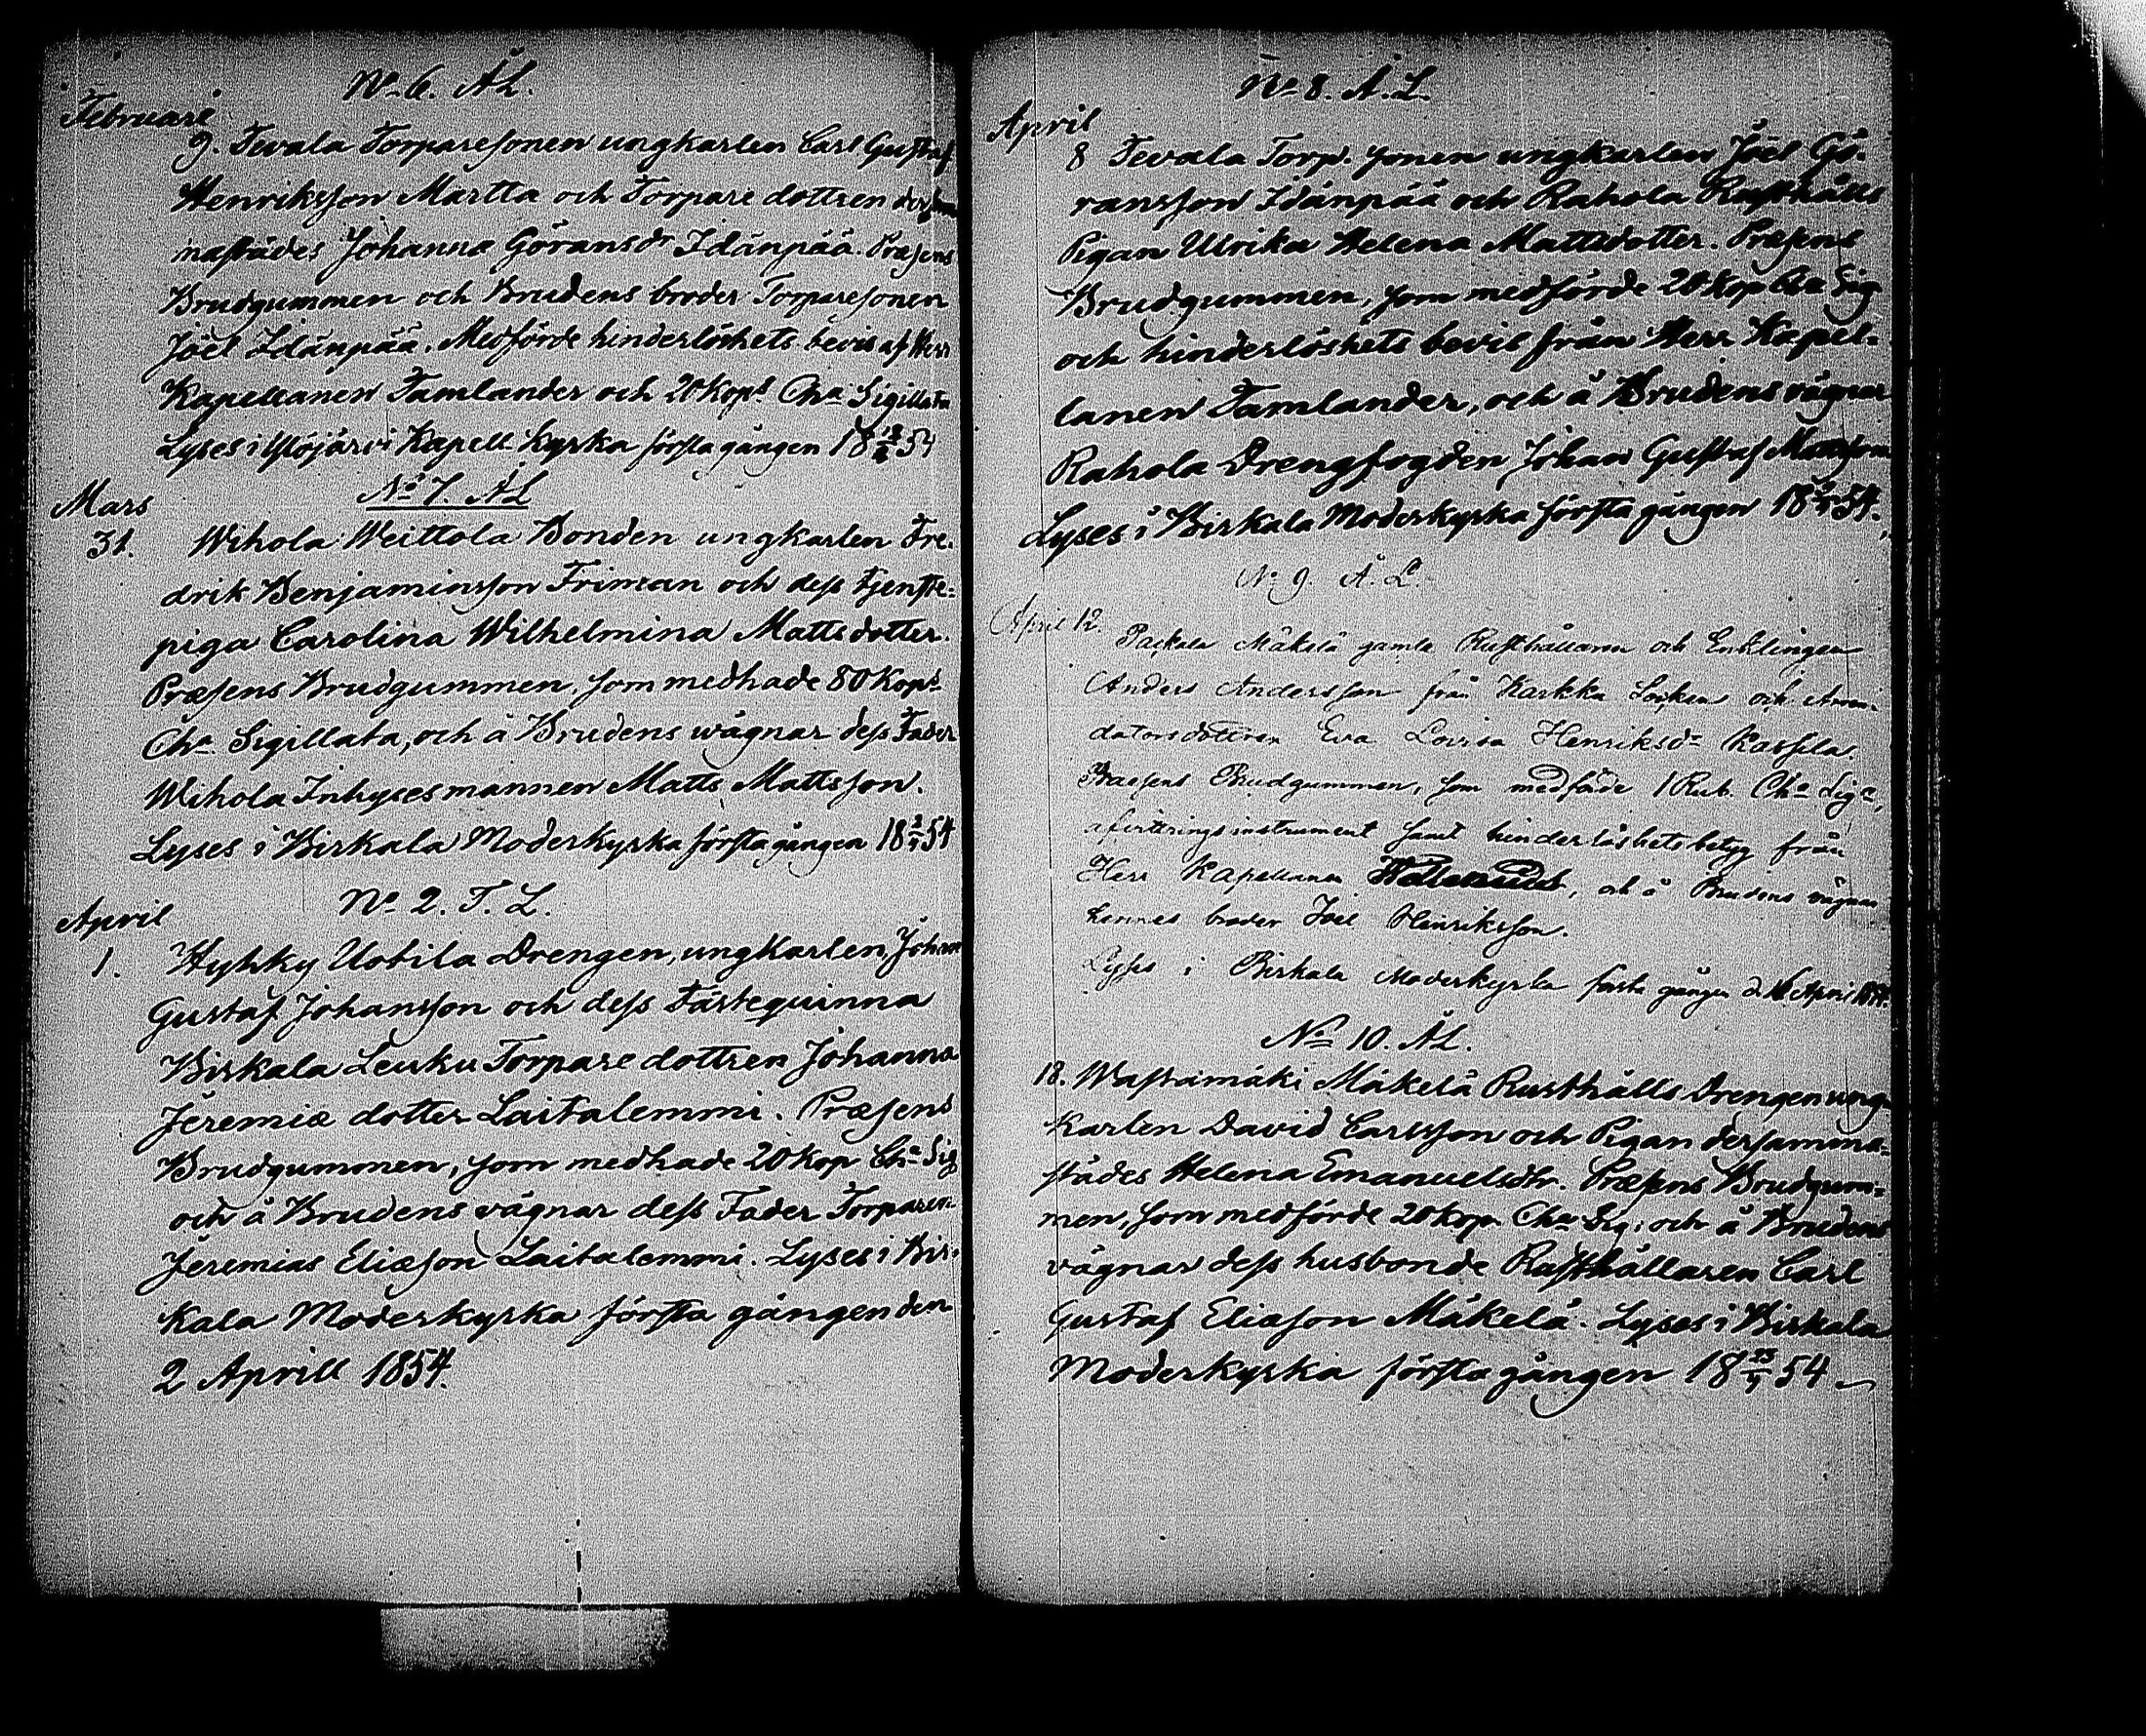 No 6. ÅL.
Februari
9. Tevala Torparesonen ungkarlen Carl Gustaf
Henriksson Martta och Torpare dottren dersam
mastädes Johanna Göransdr Idänpää. Præsens
Brudgummen och Brudens broder Torparesonen
Joël Idänpää. Medförde hinderlöshets bevis af Herr
Kapellanen Tamlander och 20 Kops Cha Sigillata
Lyses i Ylöjärvi Kapell Kyrka första gången 18 54
No 7. ÅL
Mars
31. Wihola Weittola Bonden ungkarlen Fre-
drik Benjaminsson Friman och dess tjenste-
piga Carolina Wilhelmina Mattsdotter.
Præsens Brudgummen, som medhade 80 Kops
Cha Sigillata, och å Brudens wägnar dess Fader
Wihola Inhysesmannen Matts Mattsson.
Lyses i Birkala Moderkyrka första gången 18 2/4 54
No 2. T. L.
April
1. Hyhky Uotila Drengen, ungkarlen, Johan
Gustaf Johansson och dess Fästequinna
Birkala Leuku Torpare dottren Johanna
Jeremiæ dotter Laitalemmi. Præsens
Brudgummen, som medhade 20 Kop Cha Sig
och å Brudens vägnar dess Fader Torparen
Jeremias Eliæson Laitalemmi. Lyses i Bir-
kala Moderkyrka första gången den
2 Aprill 1854.
No 8. Å.L.
April
8 Tevala Torp. sonen ungkarlen Joël Gö-
ransson Idänpää och Rahola Rusthålls
Pigan Ulrika Helena Mattsdotter. Præsens
Brudgummen, som medförde 20 Kop Cha Sig
och hinderlöshets bevis från Herr Kapel-
lanen Tamlander, och å Brudens vägnar
Rahola Drengfogden Johan Gustaf Mattsson
Lyses i Birkala Moderkyrka första gången 18 54.
No 9. Å. L.
April 12.
Packala Mäkelä gamle Rusthållaren och Enklingen
Anders Andersson från Karkku Socken och Arren-
datorsdottren Eva Lovisa Henriksdr Kassila.
Praesens Brudgummen, som medförde 1 Rub. Cha Siga,
afvittringsinstrument samt hinderlöshetsbetyg från
Herr Kapellanen , och å Brudens vägnar
hennes broder Joel Henriksson.
Lyses i Birkala Moderkyrka första gången d. 16 April 1854.
No 10. ÅL.
18. Wastamäki Mäkelä Rusthålls Drengen ung-
karlen David Carlsson och Pigan dersamma-
städes Helena Emanuelsdtr. Præsens Brudgum-
men, som medförde 20 Kop. Cha Sig: och å Brudens
vägnar dess husbonde Rusthållaren Carl
Gustaf Eliæson Mäkelä. Lyses i Birkala
Moderkyrka första gången 18 23/4 54